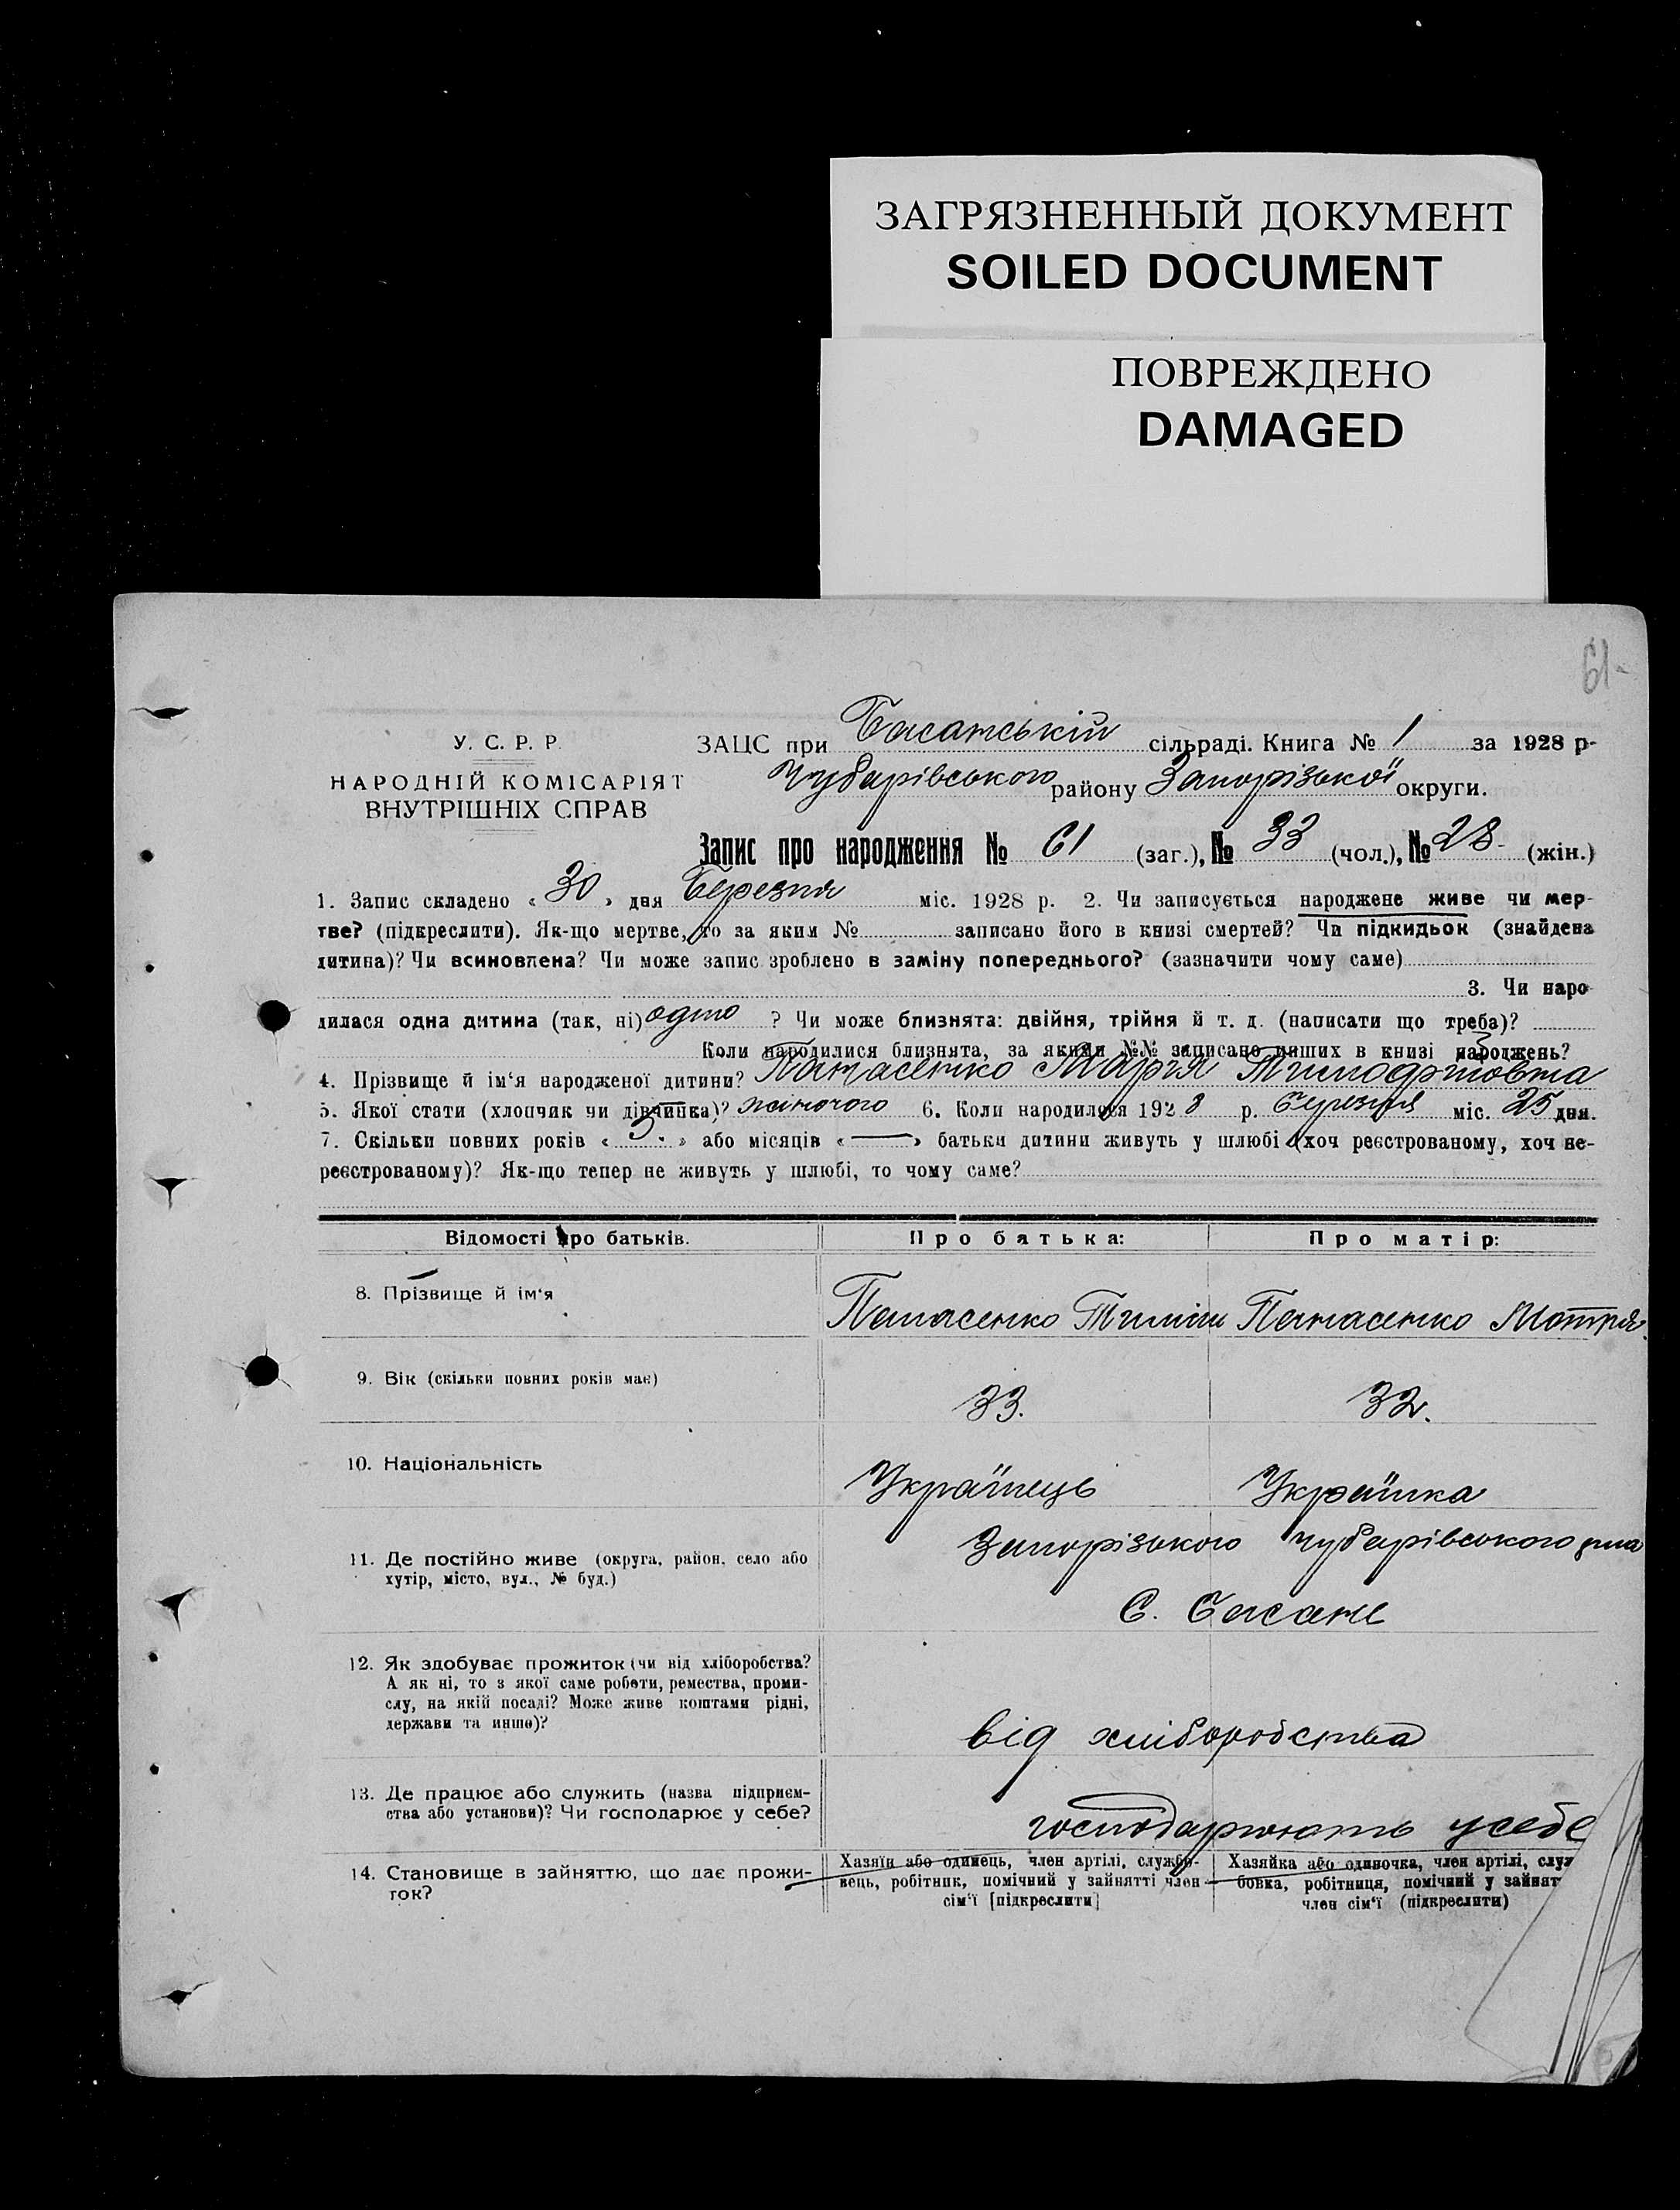 ЗАГРЯЗНЕННЫЙ ДОКУМЕНТ
SOILED DOCUMENT
ПОВРЕЖДЕНО
DAMAGED
61-
У. С. Р. Р.
НАРОДНІЙ КОМІСАРІЯТ
ВНУТРІШНІХ СПРАВ
ЗАЦС при Басанській сільраді. Книга № 1 за 1928 р-
Чубарівського району Запорізької округи.
Запис про народження № 61 (заг.), № 33 (чол.), № 28- (жін.)
1. Запис складено « 30 » дня Березня міс. 1928 р. 2. Чи записується народжене живе чи мер-
тве? (підкреслити). Як-що мертве, то за яким № записано його в книзі смертей? Чи підкидьок (знайдена
дитина)? Чи всиновлена? Чи може запис зроблено в заміну попереднього? (зазначити чому саме)
3. Чи наро-
дилася одна дитина (так, ні) одно ? Чи може близнята: двійня, трійня й т. д. (написати що треба)?
Коли народилися близнята, за якими №№ записано инших в книзі народжень?
4. Прізвище й ім'я народженої дитини? Панасенко Марія
5. Якої стати (хлопчик чи дівчинка)? жіночого 6. Коли народилося 1928 р. Березня міс. 25 дня.
7. Скільки повних років « 5. » або місяців « — » батьки дитини живуть у шлюбі (хоч реєстрованому, хоч не-
реєстрованому)? Як-що тепер не живуть у шлюбі, то чому саме?
Відомості про батьків. Про батька: Про матір:
8. Прізвище й ім'я Панасенко Тиміш Панасенко Мотря.
9. Вік (скільки повних років має) 33. 32.
10. Національність Українець Українка
11. Де постійно живе (округа, район, село або Запорізького Чубарівського р-на
хутір, місто, вул., № буд.) С. Басане
12. Як здобуває прожиток (чи від хліборобства?
А як ні, то з якої саме роботи, ремества, проми-
слу, на якій посаді? Може живе коштами рідні,
держави та инше)? від хліборобства
13. Де працює або служить (назва підприєм-
ства або установи)? Чи господарює у себе? господарюють у себе
14. Становище в зайняттю, що дає прожи- Хазяїн або одинець, член артілі, службо- Хазяйка або одиночка, член артілі, служ
ток? вець, робітник, помічний у зайнятті член бовка, робітниця, помічний у зайнят
сім'ї [підкреслити] член сім'ї (підкреслити)